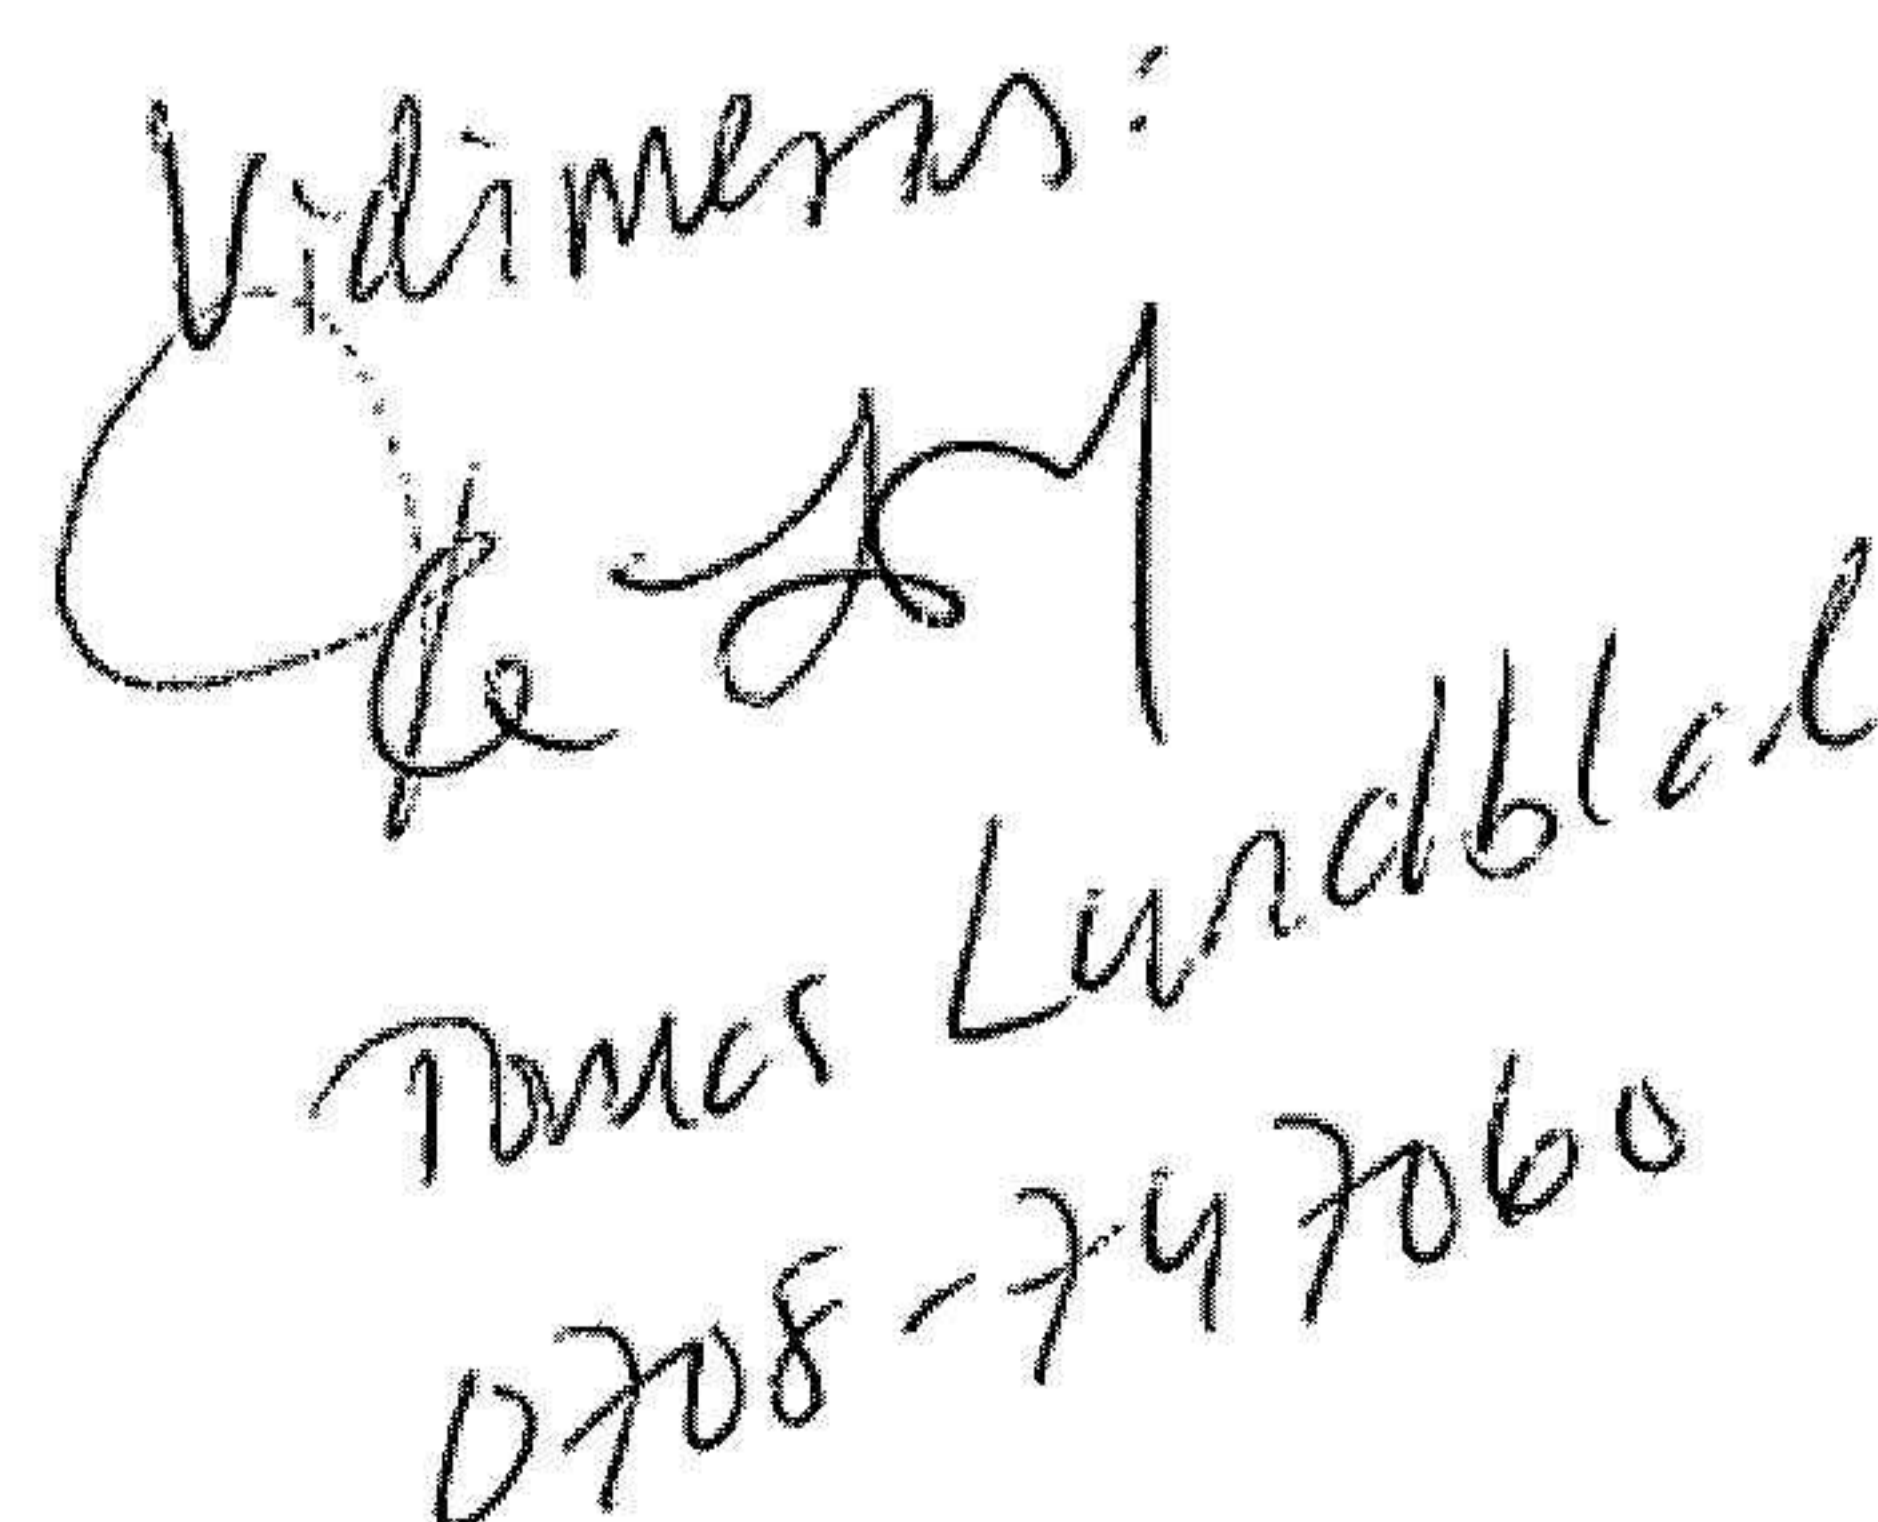 Vidimeras:
Tomas Lundblad
0708-747060